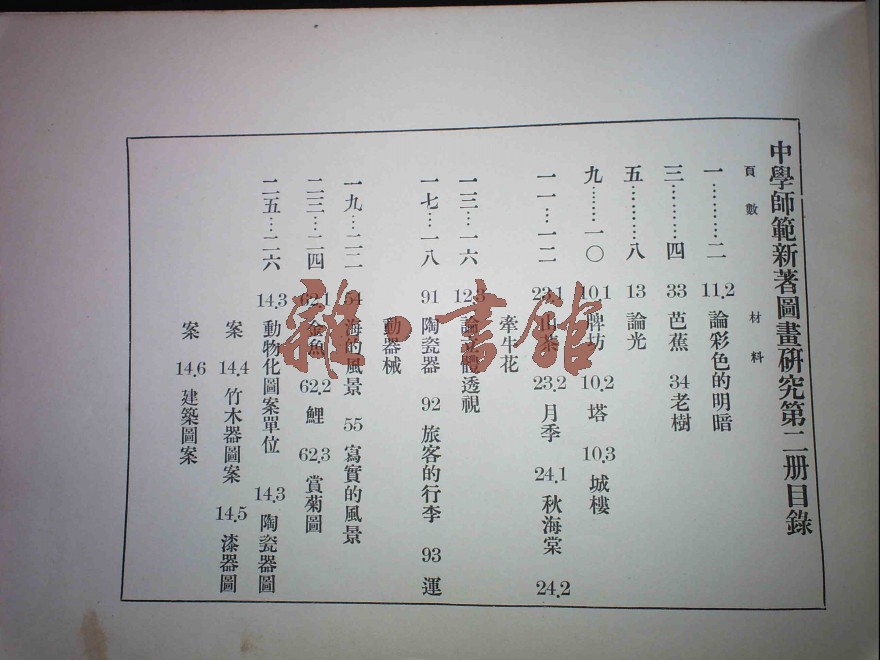 中學師範新著圖畫研究第二册目錄
頁數 材料
一…………二 11.2 論彩色的明暗
三…………四 33 芭蕉 34 老樹
五…………八 13 論光
九………一〇 10.1 牌坊 10.2 塔 10.3 城樓
一一…一二 23.1 山茶 23.2 月季 24.1 秋海棠 24.2
牽牛花
一三…一六 12.3 論立體透視
一七…一八 91 陶瓷器 92 旅客的行李 93 運
動器械
一九…二二 54 海的風景 55 寫實的風景
二三…二四 62.1 金魚 62.2 鯉 62.3 賞菊圖
二五…二六 14.3 動物化圖案單位 14.3 陶瓷器圖
案 14.4 竹木器圖案 14.5 漆器圖
案 14.6 建築圖案
雜·書館